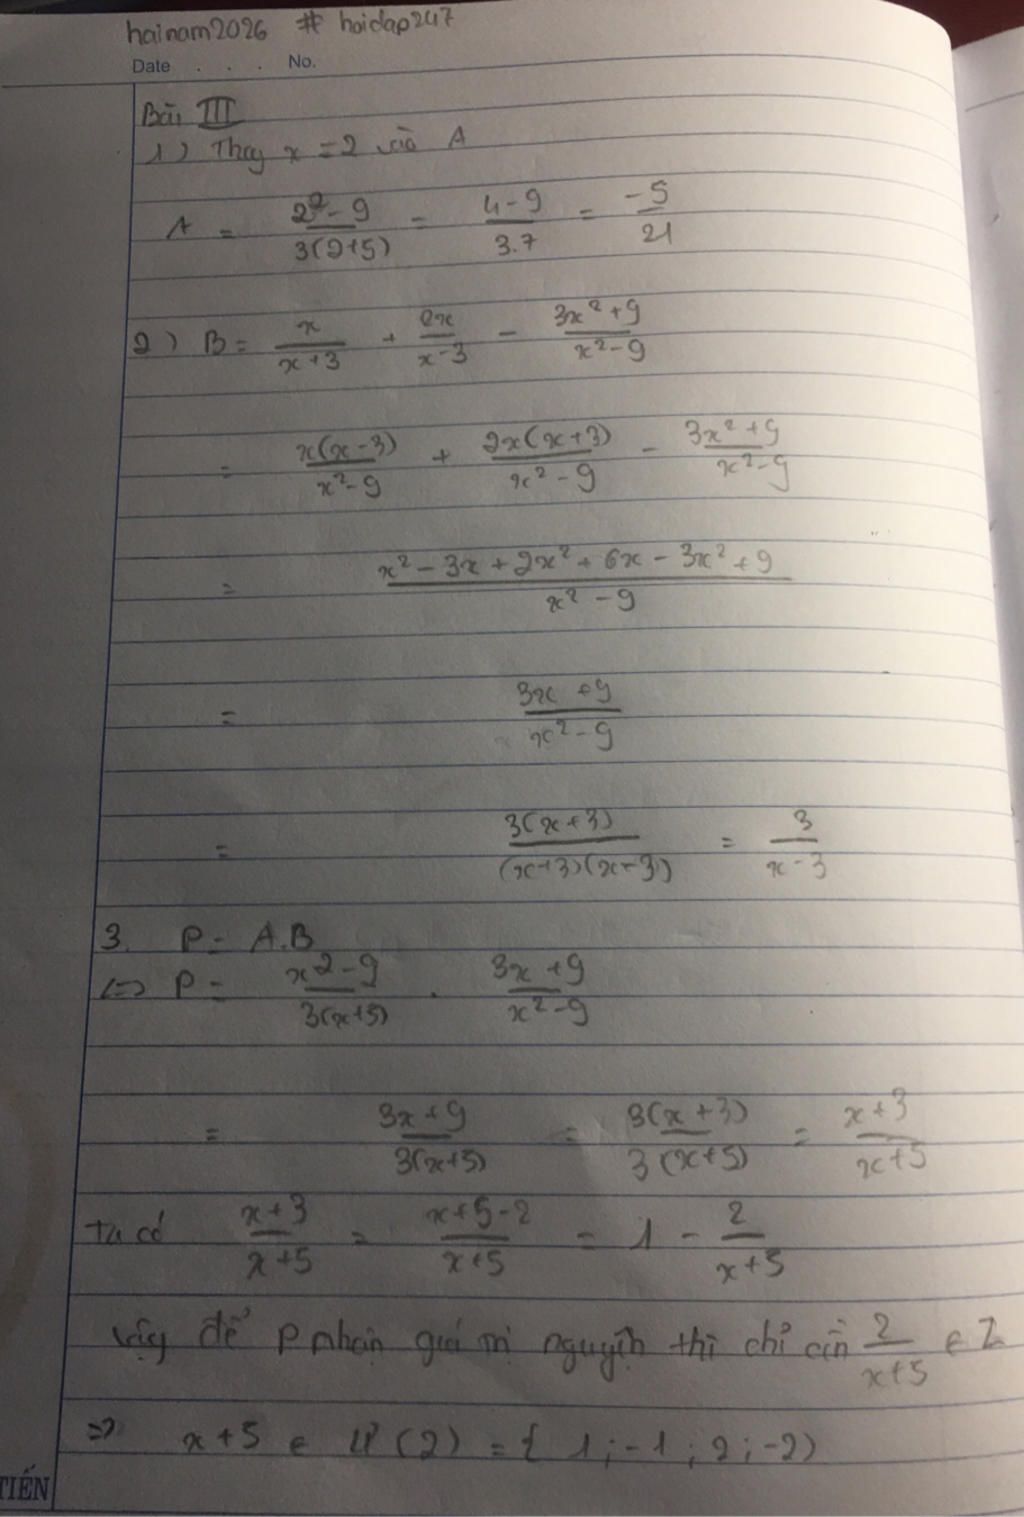 hainam2026 # hoidap247
Date . . . No.
Bài III
1) Thay x = 2 vào A
A = \frac{2^2 - 9}{3(2+5)} = \frac{4-9}{3.7} = \frac{-5}{21}
2) B = \frac{x}{x+3} + \frac{2x}{x-3} - \frac{3x^2+9}{x^2-9}
= \frac{x(x-3)}{x^2-9} + \frac{2x(x+3)}{x^2-9} - \frac{3x^2+9}{x^2-9}
= \frac{x^2-3x+2x^2+6x-3x^2+9}{x^2-9}
= \frac{3x+9}{x^2-9}
= \frac{3(x+3)}{(x+3)(x-3)} = \frac{3}{x-3}
3. P = A.B
<=> P = \frac{x^2-9}{3(x+5)} . \frac{3x+9}{x^2-9}
= \frac{3x+9}{3(x+5)} = \frac{3(x+3)}{3(x+5)} = \frac{x+3}{x+5}
ta có \frac{x+3}{x+5} = \frac{x+5-2}{x+5} = 1 - \frac{2}{x+5}
vậy để P nhận giá trị nguyên thì chỉ cần \frac{2}{x+5} ∈ Z
=> x+5 ∈ Ư(2) = { 1 ; -1 ; 2 ; -2 )
TIẾN